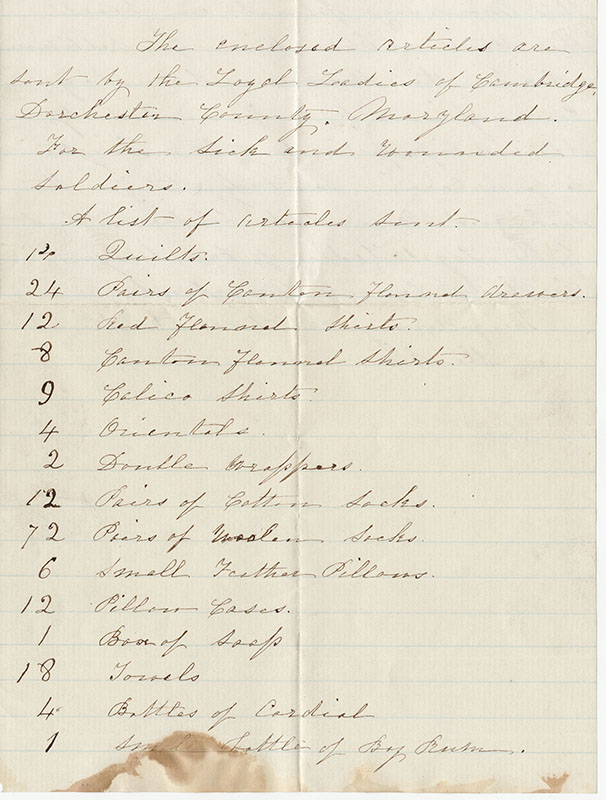 The enclosed articles are
sent by the Loyal Ladies of Cambridge,
Dorchester County, Maryland.
For the Sick and Wounded
Soldiers.
A list of articles sent.
Quilts.
24 Pairs of Canton flannel drawers.
12 Red flannel Shirts.
8 Canton flannel Shirts.
9 Calico Shirts.
4 Orientals.
2 Double Wrappers.
12 Pairs of Cotton Socks.
72 Pairs of Woolen Socks.
6 Small Feather Pillows.
12 Pillow Cases.
1 Box of Soap
18 Towels
4 Bottles of Cordial
1 Small Bottle of Bay Rum.